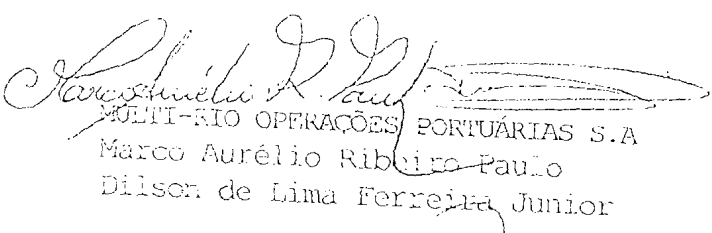 Marco Aurélio R. Paulo
MULTI-RIO OPERAÇÕES PORTUÁRIAS S.A
Marco Aurélio Ribeiro Paulo
Dilson de Lima Ferreira Junior